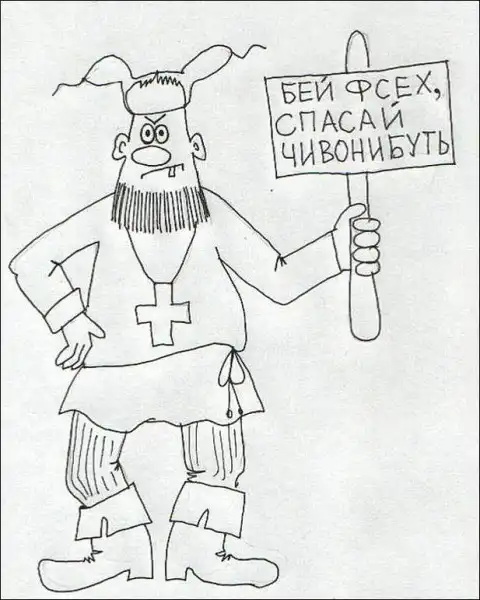 БЕЙ ФСЕХ,
СПАСАЙ
ЧИВОНИБУТЬ